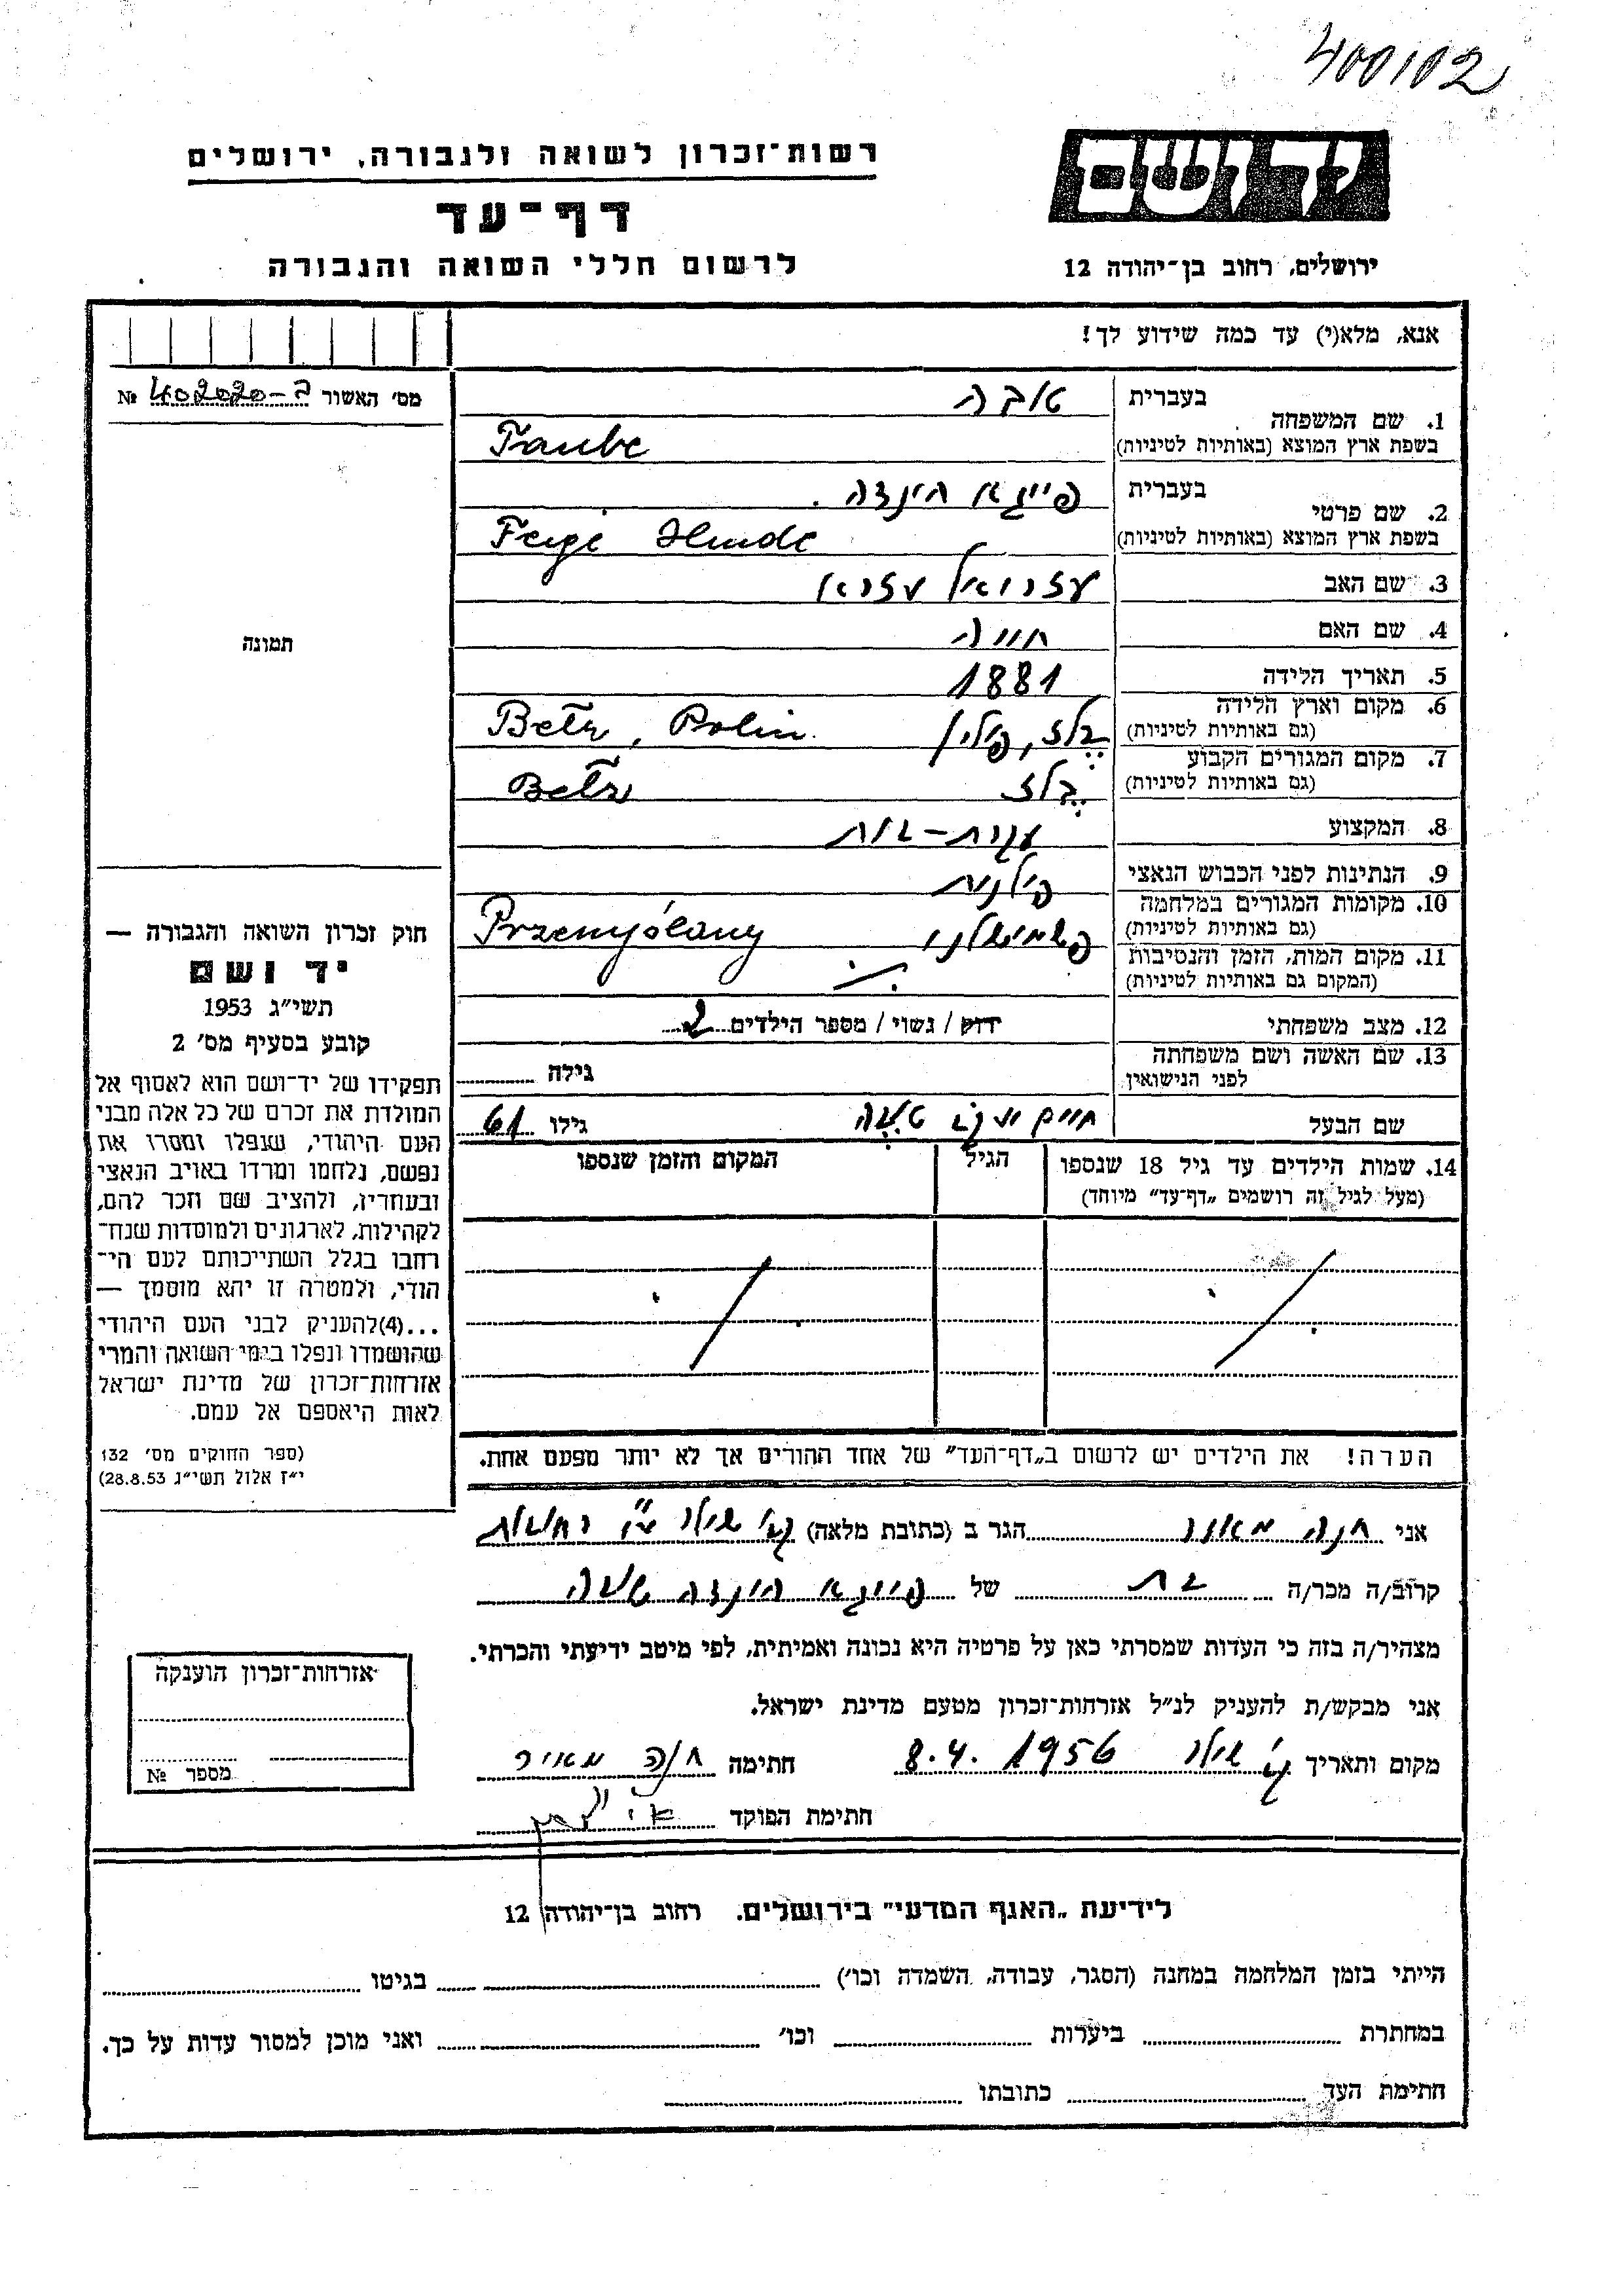 400102
יד ושם
רשות־זכרון לשואה ולגבורה, ירושלים
דף־עד
לרשום חללי השואה והגבורה
ירושלים, רחוב בן־יהודה 12
אנא, מלא(י) עד כמה שידוע לך!
מס׳ האשור № 402020-ב
1. שם המשפחה
בעברית טובה
בשפת ארץ המוצא (באותיות לטיניות) Taube
2. שם פרטי
בעברית פייגא הינדה.
בשפת ארץ המוצא (באותיות לטיניות) Feige Hinde
3. שם האב עזריאל עזרא
4. שם האם חוה
5. תאריך הלידה 1881
6. מקום וארץ הלידה
(גם באותיות לטיניות) בלז, פולין Bełz, Polin.
7. מקום המגורים הקבוע
(גם באותיות לטיניות) בלז Bełz
8. המקצוע עקרת-בית
9. הנתינות לפני הכבוש הנאצי פולנית
10. מקומות המגורים במלחמה
(גם באותיות לטיניות) Przemyślany
11. מקום המות, הזמן והנסיבות
(המקום גם באותיות לטיניות)
12. מצב משפחתי רוק / נשוי / מספר הילדים 2
13. שם האשה ושם משפחתה
לפני הנישואין גילה
שם הבעל חיים יעקב טובה גילו 61
14. שמות הילדים עד גיל 18 שנספו
(מעל לגיל זה רושמים „דף־עד" מיוחד)
הגיל
המקום והזמן שנספו
הערה! את הילדים יש לרשום ב„דף־העד" של אחד ההורים אך לא יותר מפעם אחת.
תמונה
חוק זכרון השואה והגבורה —
יד ושם
תשי״ג 1953
קובע בסעיף מס׳ 2
תפקידו של יד־ושם הוא לאסוף אל
המולדת את זכרם של כל אלה מבני
העם היהודי, שנפלו ומסרו את
נפשם, נלחמו ומרדו באויב הנאצי
ובעוזריו, ולהציב שם וזכר להם,
לקהילות, לארגונים ולמוסדות שנח־
רבו בגלל השתייכותם לעם הי־
הודי, ולמטרה זו יהא מוסמך —
...(4)להעניק לבני העם היהודי
שהושמדו ונפלו בימי השואה והמרי
אזרחות־זכרון של מדינת ישראל
לאות היאספם אל עמם.
(ספר החוקים מס׳ 132
י״ז אלול תשי״ג 28.8.53)
אני חנה מאיר הגר ב (כתובת מלאה)
קרוב/ה מכר/ה בת של פייגא הינדה טובה
מצהיר/ה בזה כי העדות שמסרתי כאן על פרטיה היא נכונה ואמיתית, לפי מיטב ידיעתי והכרתי.
אני מבקש/ת להעניק לנ״ל אזרחות־זכרון מטעם מדינת ישראל.
מקום ותאריך 8.4.1956 חתימה חנה מאיר
חתימת הפוקד
אזרחות־זכרון הוענקה
מספר №
לידיעת „האגף המדעי" בירושלים, רחוב בן־יהודה 12
הייתי בזמן המלחמה במחנה (הסגר, עבודה, השמדה וכו׳) בגיטו
במחתרת ביערות וכו׳ ואני מוכן למסור עדות על כך.
חתימת העד כתובתו